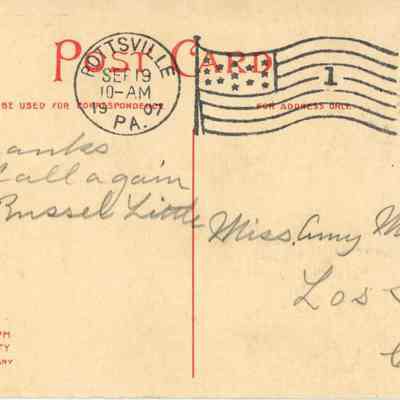 POST CARD
POTTSVILLE
SEP 19
10-AM
1907
PA.
1
BE USED FOR CORRESPONDENCE
FOR ADDRESS ONLY.
anks
all again
Russel Little
Miss. Amy M
Los